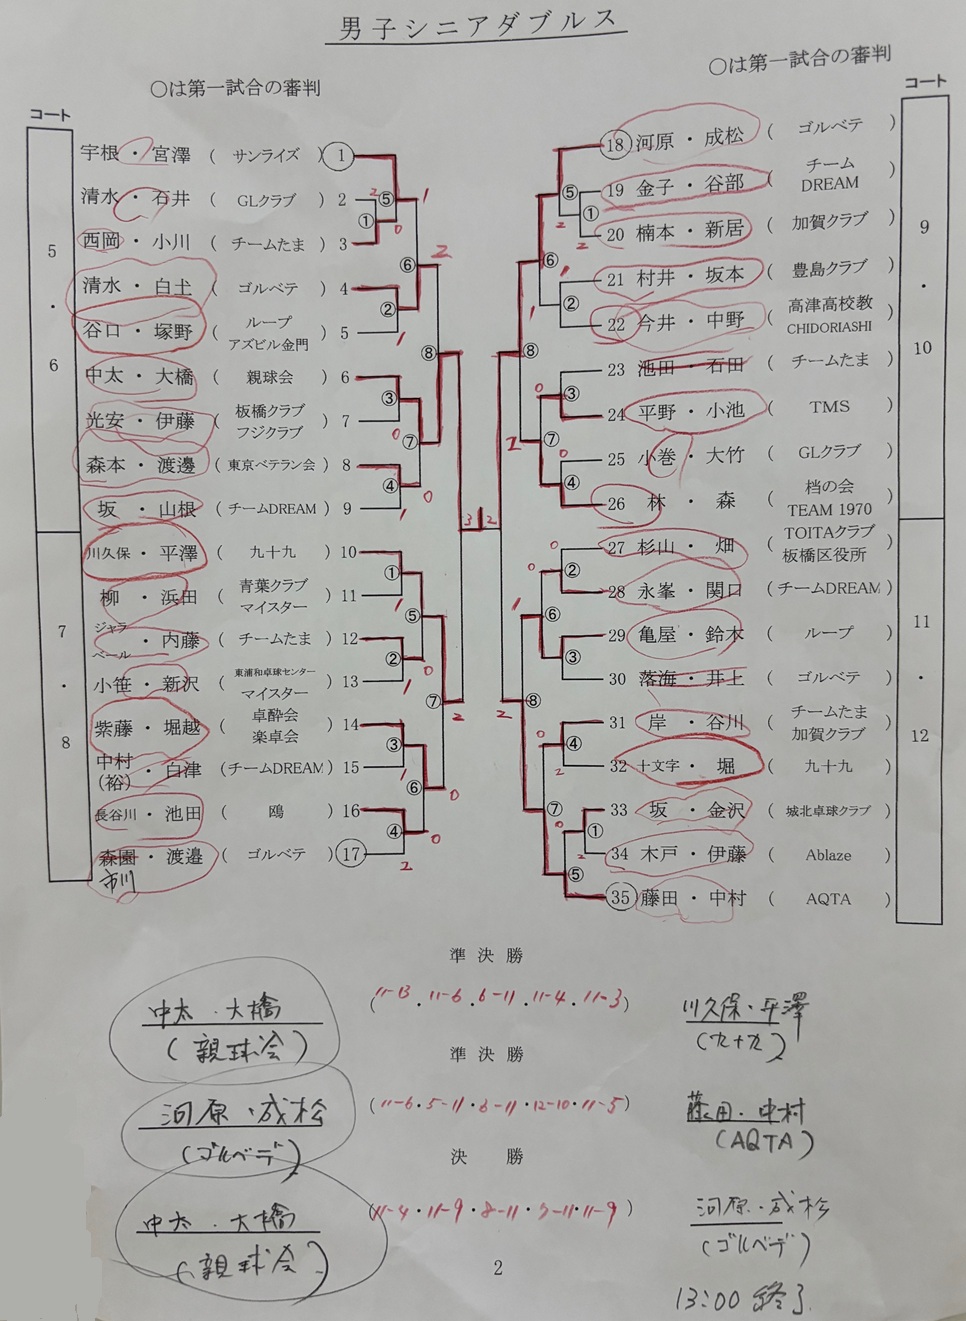 男子シニアダブルス
○は第一試合の審判
○は第一試合の審判
コート
コート
5
・
6
7
・
8
宇根・宮澤 ( サンライズ ) 1
清水・石井 ( GLクラブ ) 2
西岡・小川 ( チームたま ) 3
清水・白土 ( ゴルベテ ) 4
谷口・塚野 ( ループ アズビル金門 ) 5
中太・大橋 ( 親球会 ) 6
光安・伊藤 ( 板橋クラブ フジクラブ ) 7
森本・渡邊 ( 東京ベテラン会 ) 8
坂・山根 ( チームDREAM ) 9
川久保・平澤 ( 九十九 ) 10
柳・浜田 ( 青葉クラブ マイスター ) 11
ジャラベール・内藤 ( チームたま ) 12
小笹・新沢 ( 東浦和卓球センター マイスター ) 13
紫藤・堀越 ( 卓酔会 楽卓会 ) 14
中村(裕)・白津 ( チームDREAM ) 15
長谷川・池田 ( 鴎 ) 16
森園・渡邉 ( ゴルベテ ) 17
市川
9
・
10
11
・
12
18 河原・成松 ( ゴルベテ )
19 金子・谷部 ( チーム DREAM )
20 楠本・新居 ( 加賀クラブ )
21 村井・坂本 ( 豊島クラブ )
22 今井・中野 ( 高津高校教 CHIDORIASHI )
23 池田・石田 ( チームたま )
24 平野・小池 ( TMS )
25 小巻・大竹 ( GLクラブ )
26 林・森 ( 档の会 TEAM 1970 )
27 杉山・畑 ( TOITAクラブ 板橋区役所 )
28 永峯・関口 ( チームDREAM )
29 亀屋・鈴木 ( ループ )
30 落海・井上 ( ゴルベテ )
31 岸・谷川 ( チームたま 加賀クラブ )
32 十文字・堀 ( 九十九 )
33 坂・金沢 ( 城北卓球クラブ )
34 木戸・伊藤 ( Ablaze )
35 藤田・中村 ( AQTA )
準決勝
中太・大橋 (11-13・11-6・6-11・11-4・11-3) 川久保・平澤
(親球会) (九十九)
準決勝
河原・成松 (11-6・5-11・6-11・12-10・11-5) 藤田・中村
(ゴルベテ) (AQTA)
決勝
中太・大橋 (11-4・11-9・8-11・5-11・11-9) 河原・成松
(親球会) (ゴルベテ)
2
13:00 終了